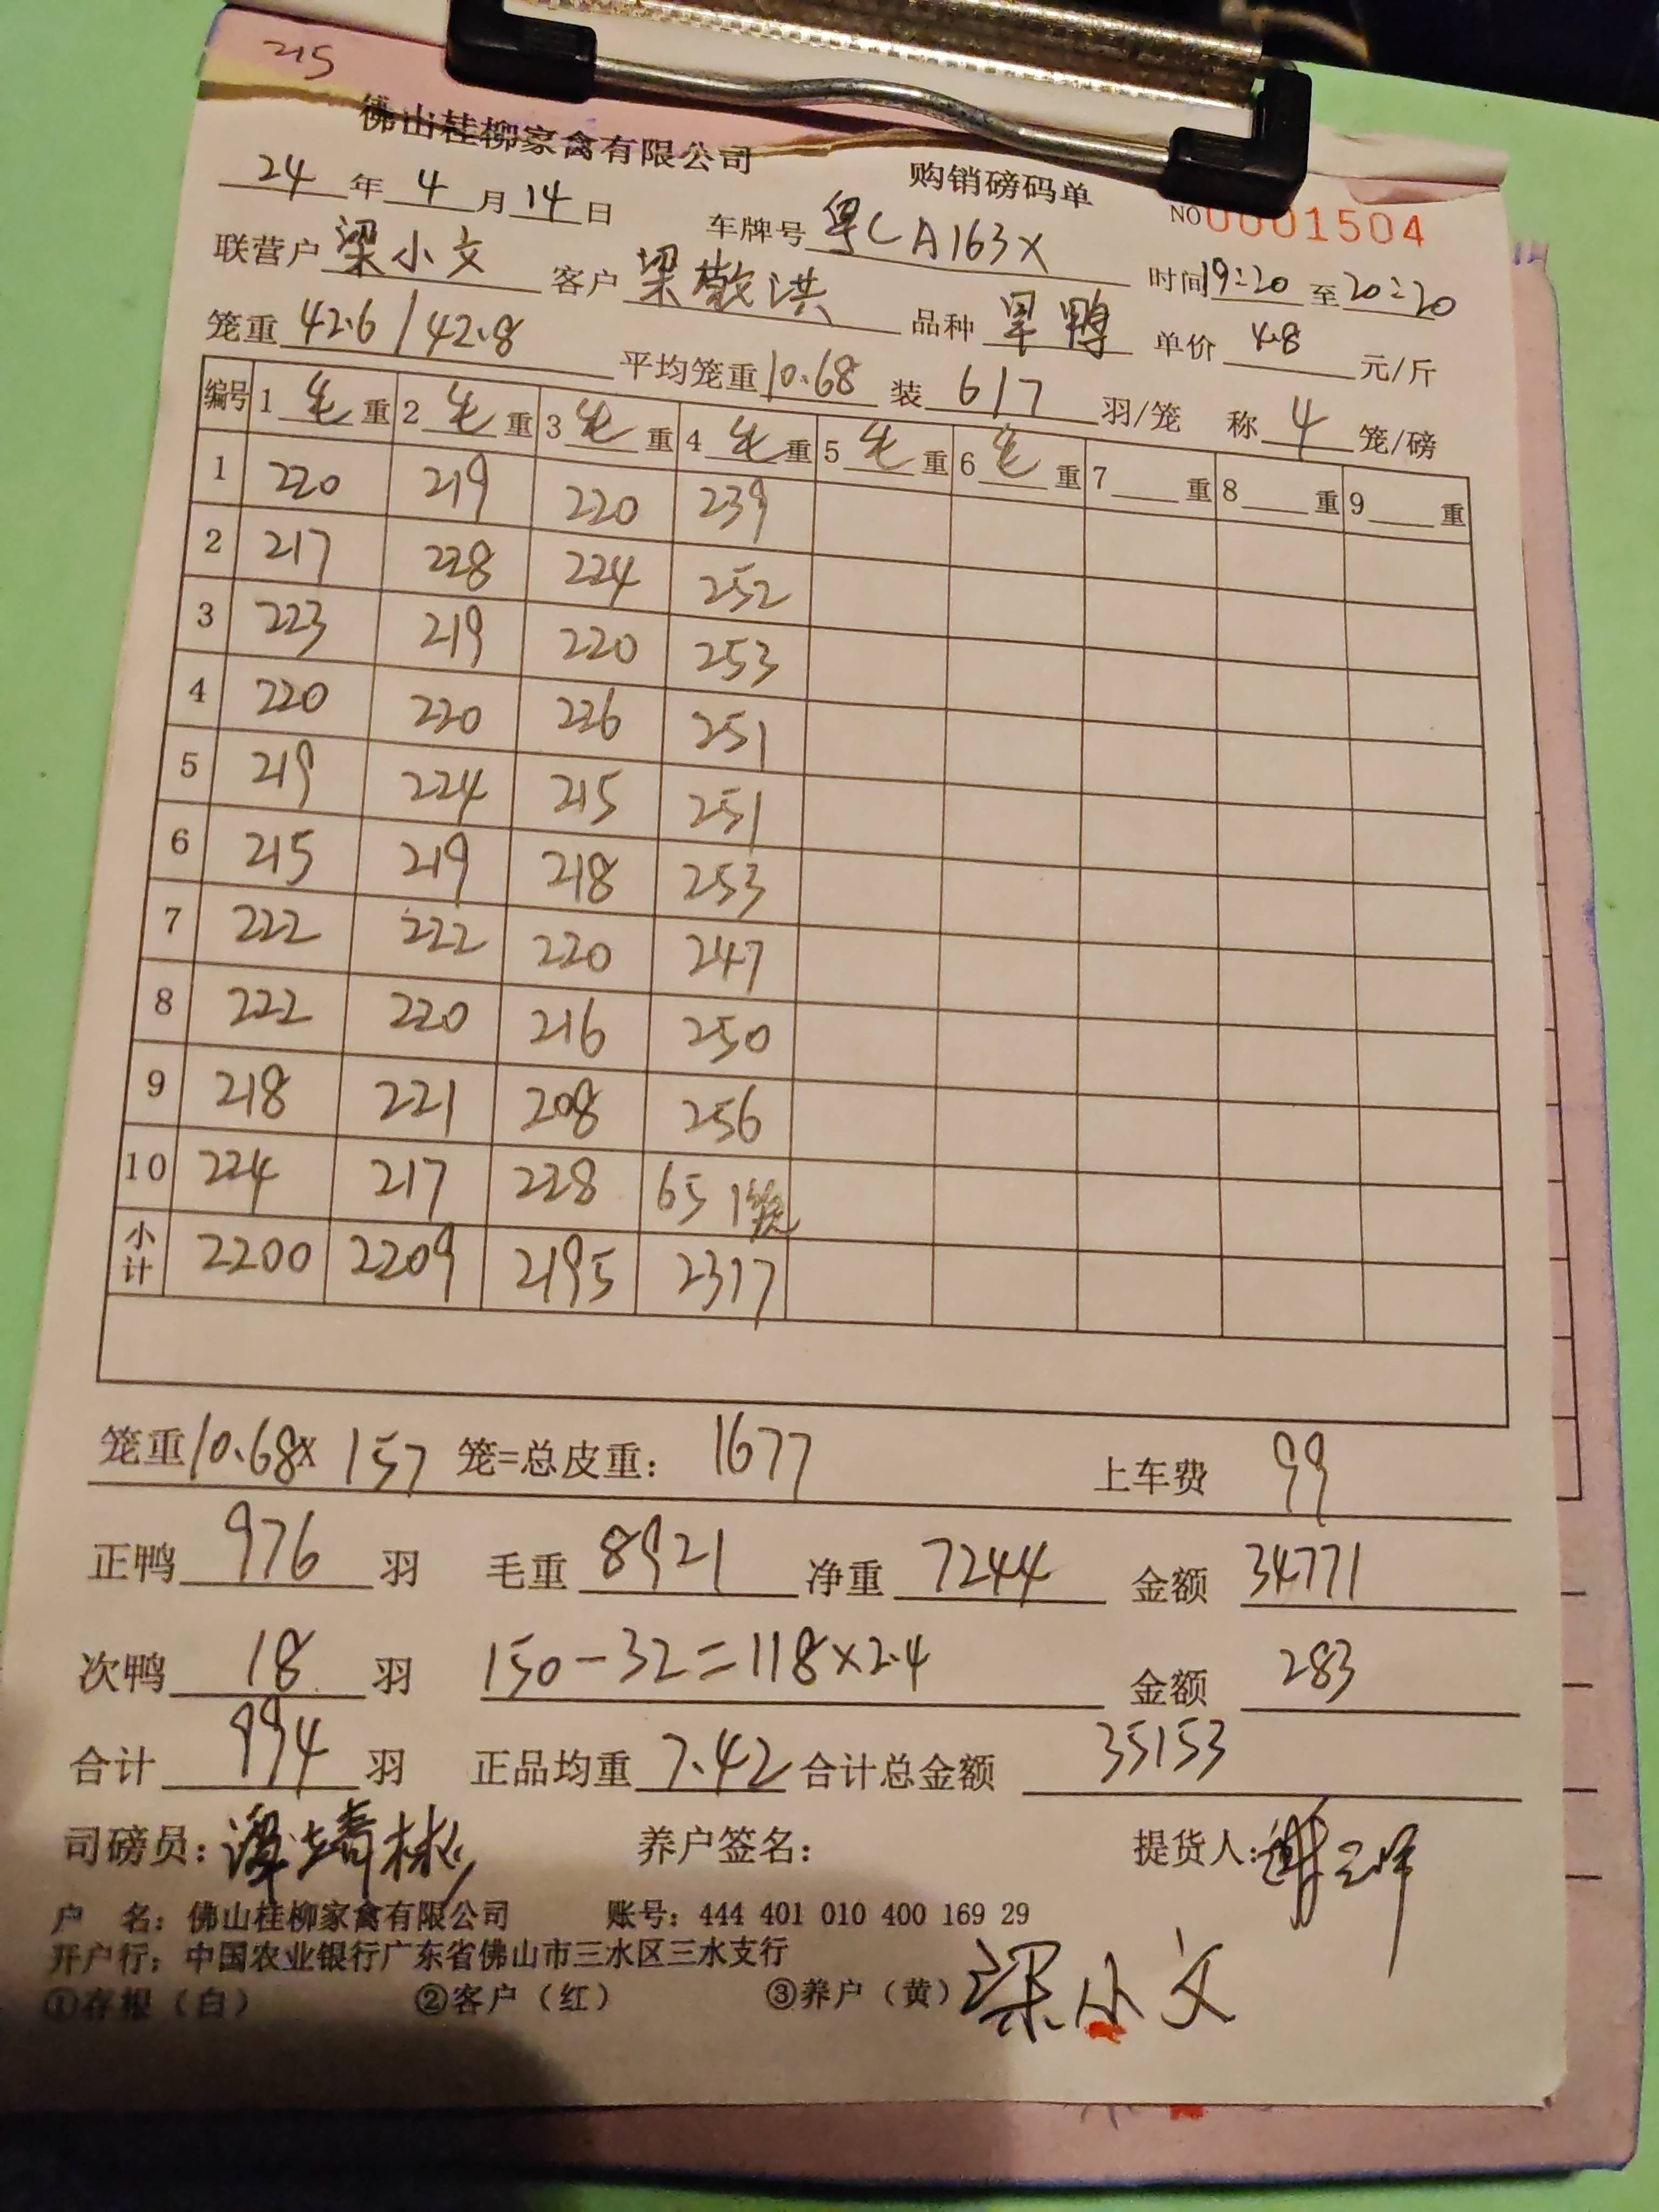 215
佛山桂柳家禽有限公司 购销磅码单
24年4月14日 车牌号 粤CA163X NO 0001504
联营户 梁小文 客户 梁敬洪 时间 19:20 至 20:20
笼重 42.6/42.8 平均笼重 10.68 品种 旱鸭 单价 4.8 元/斤
装 6/7 羽/笼 称 4 笼/磅
编号 1毛重 2毛重 3毛重 4毛重 5毛重 6毛重 7重 8重 9重
1 220 219 220 239
2 217 228 224 252
3 223 219 220 253
4 220 220 226 251
5 219 224 215 251
6 215 219 218 253
7 222 222 220 247
8 222 220 216 250
9 218 221 208 256
10 224 217 228 65 1笼
小计 2200 2209 2195 2317
笼重 10.68× 157 笼=总皮重: 1677 上车费 99
正鸭 976 羽 毛重 8921 净重 7244 金额 34771
次鸭 18 羽 150-32=118×2.4 金额 283
合计 994 羽 正品均重 7.42 合计总金额 35153
司磅员: 谭靖彬 养户签名: 提货人:
户 名: 佛山桂柳家禽有限公司 账号: 444 401 010 400 169 29
开户行: 中国农业银行广东省佛山市三水区三水支行
①存根(白) ②客户(红) ③养户(黄) 梁小文